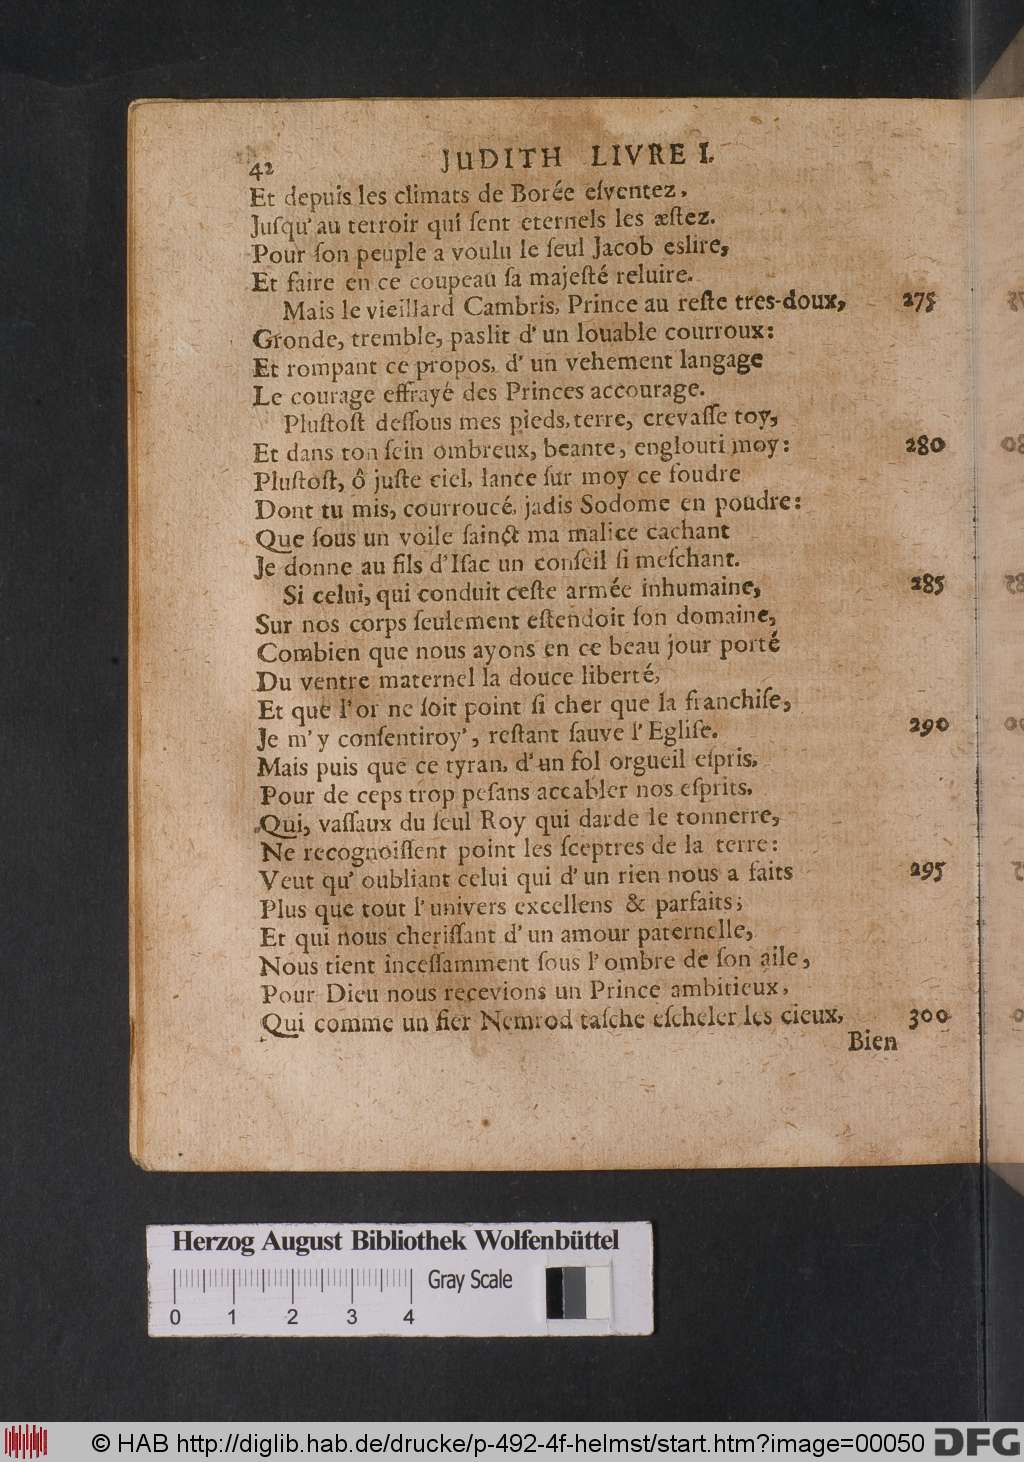 42 JUDITH LIVRE I.
Et depuis les climats de Borée eſventez,
Juſqu' au terroir qui ſent eternels les æſtez.
Pour ſon peuple a voulu le ſeul Jacob eslire,
Et faire en ce coupeau ſa majeſté reluire.
Mais le vieillard Cambris, Prince au reſte tres-doux, 275
Gronde, tremble, paslit d' un louable courroux:
Et rompant ce propos, d' un vehement langage
Le courage effrayé des Princes accourage.
Pluſtoſt deſſous mes pieds, terre, crevaſſe toy,
Et dans ton ſein ombreux, beante, englouti moy: 280
Pluſtoſt, ô juſte ciel, lance ſur moy ce foudre
Dont tu mis, courroucé, jadis Sodome en poudre:
Que ſous un voile ſainct ma malice cachant
Je donne au fils d'Iſac un conſeil ſi meſchant.
Si celui, qui conduit ceſte armée inhumaine, 285
Sur nos corps ſeulement eſtendoit ſon domaine,
Combien que nous ayons en ce beau jour porté
Du ventre maternel la douce liberté,
Et que l'or ne ſoit point ſi cher que la franchiſe,
Je m' y conſentiroy', reſtant ſauve l' Egliſe. 290
Mais puis que ce tyran, d' un fol orgueil eſpris,
Pour de ceps trop peſans accabler nos eſprits,
Qui, vaſſaux du ſeul Roy qui darde le tonnerre,
Ne recognoiſſent point les ſceptres de la terre:
Veut qu' oubliant celui qui d' un rien nous a faits 295
Plus que tout l' univers excellens & parfaits;
Et qui nous cheriſſant d' un amour paternelle,
Nous tient inceſſamment ſous l' ombre de ſon aile,
Pour Dieu nous recevions un Prince ambitieux,
Qui comme un fier Nemrod taſche eſcheler les cieux, 300
Bien
Herzog August Bibliothek Wolfenbüttel
Gray Scale
0 1 2 3 4
© HAB http://diglib.hab.de/drucke/p-492-4f-helmst/start.htm?image=00050 DFG